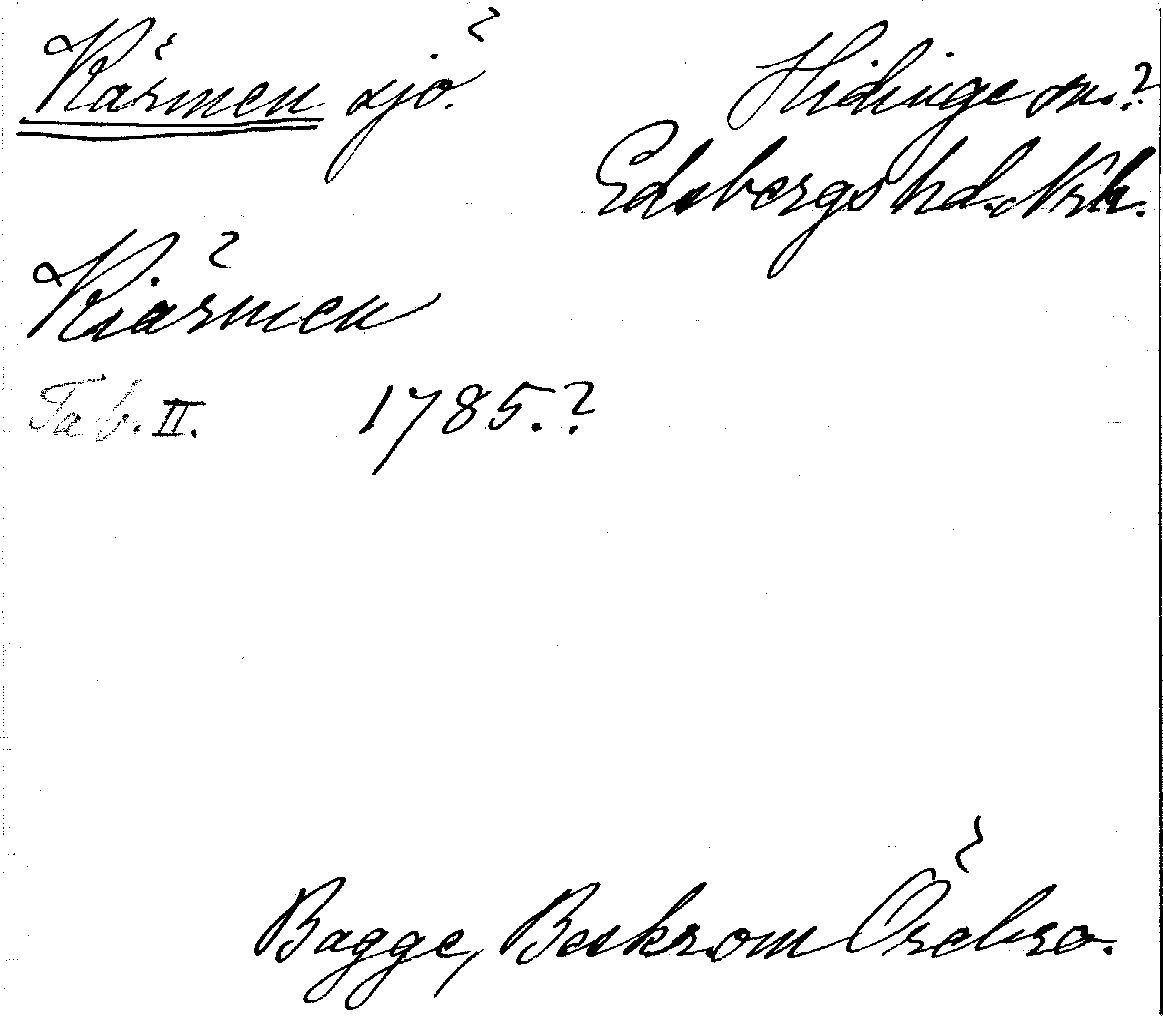 Kärmen sjö.
Hidinge sn.?
Edsbergs hd. Nrk.
Kiärmen
Tab. II. 1785.?
Bagge, Beskr. om Örebro.